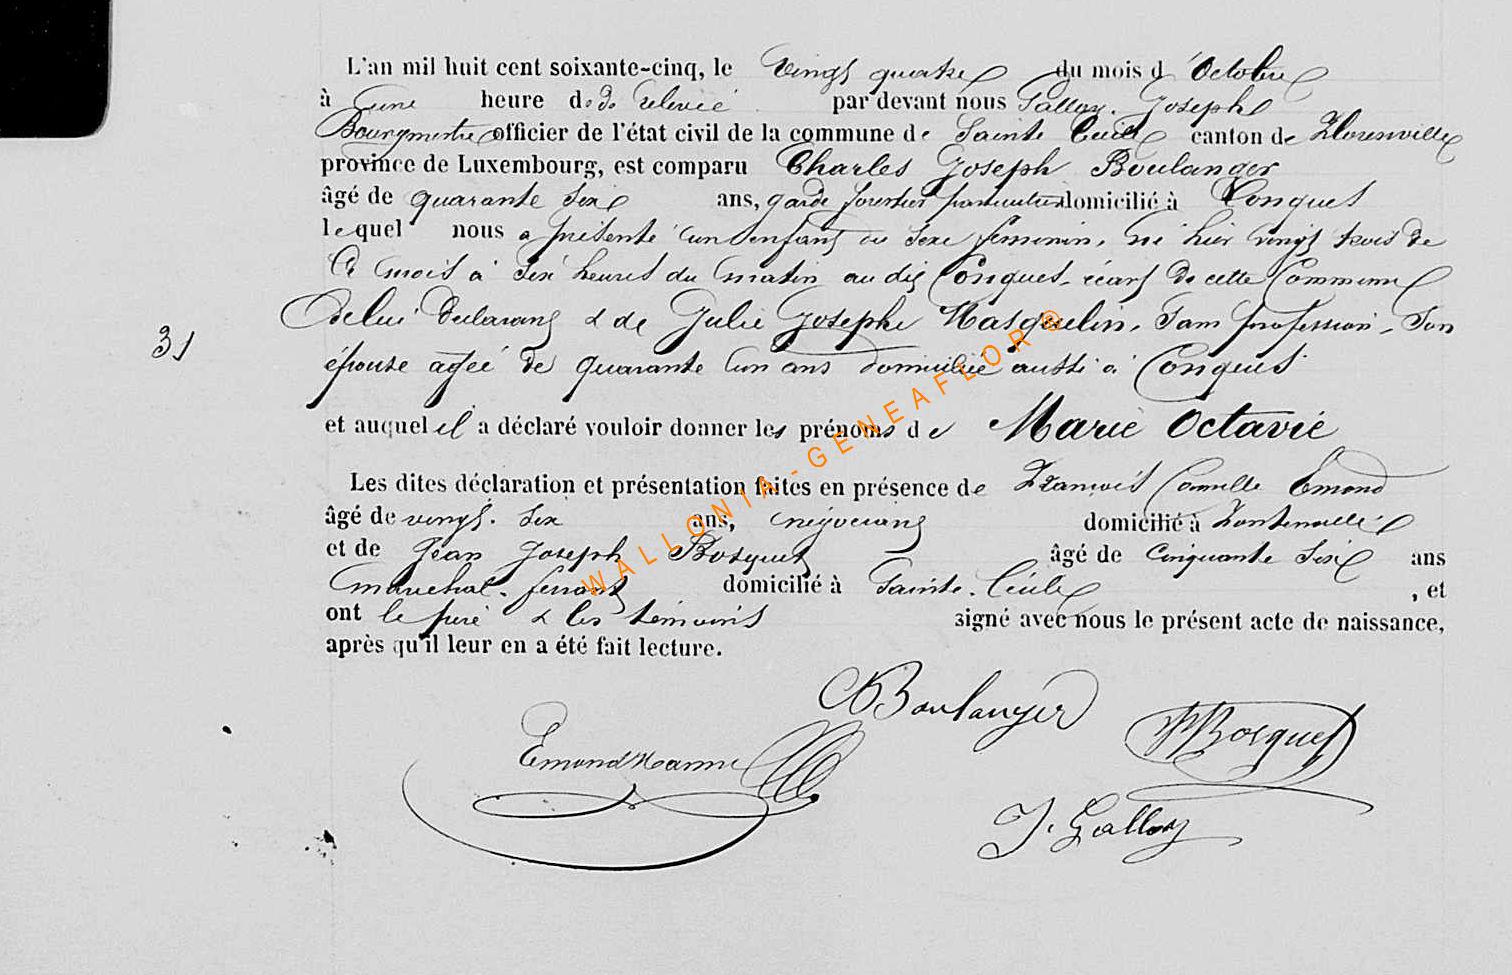 L'an mil huit cent soixante-cinq, le vingt quatre du mois d'Octobre
à une heure de relevée par devant nous Galloy Joseph
Bourgmestre officier de l'état civil de la commune de Sainte Cécile canton de Florenville
province de Luxembourg, est comparu Charles Joseph Boulanger
âgé de quarante six ans, garde forestier particulier domicilié à Conques
lequel nous a présenté un enfant du sexe féminin, né hier vingt trois de
ce mois à six heures du matin au dit Conques, écart de cette Commune
de lui déclarant & de Julie Josephe Masquelin, sans profession, son
31
épouse agée de quarante un ans domiciliée aussi à Conques
et auquel il a déclaré vouloir donner les prénoms de Marie Octavie
Les dites déclaration et présentation faites en présence de François Camille Emond
âgé de vingt-six ans, négociant domicilié à Fontenoille
et de Jean Joseph Bosquet âgé de cinquante six ans
maréchal-ferrant domicilié à Sainte-Cécile, et
ont le père & les témoins signé avec nous le présent acte de naissance,
après qu'il leur en a été fait lecture.
WALLONIA-GENEAFLOR®
Boulanger
Bosquet
Emond
J. Galloy